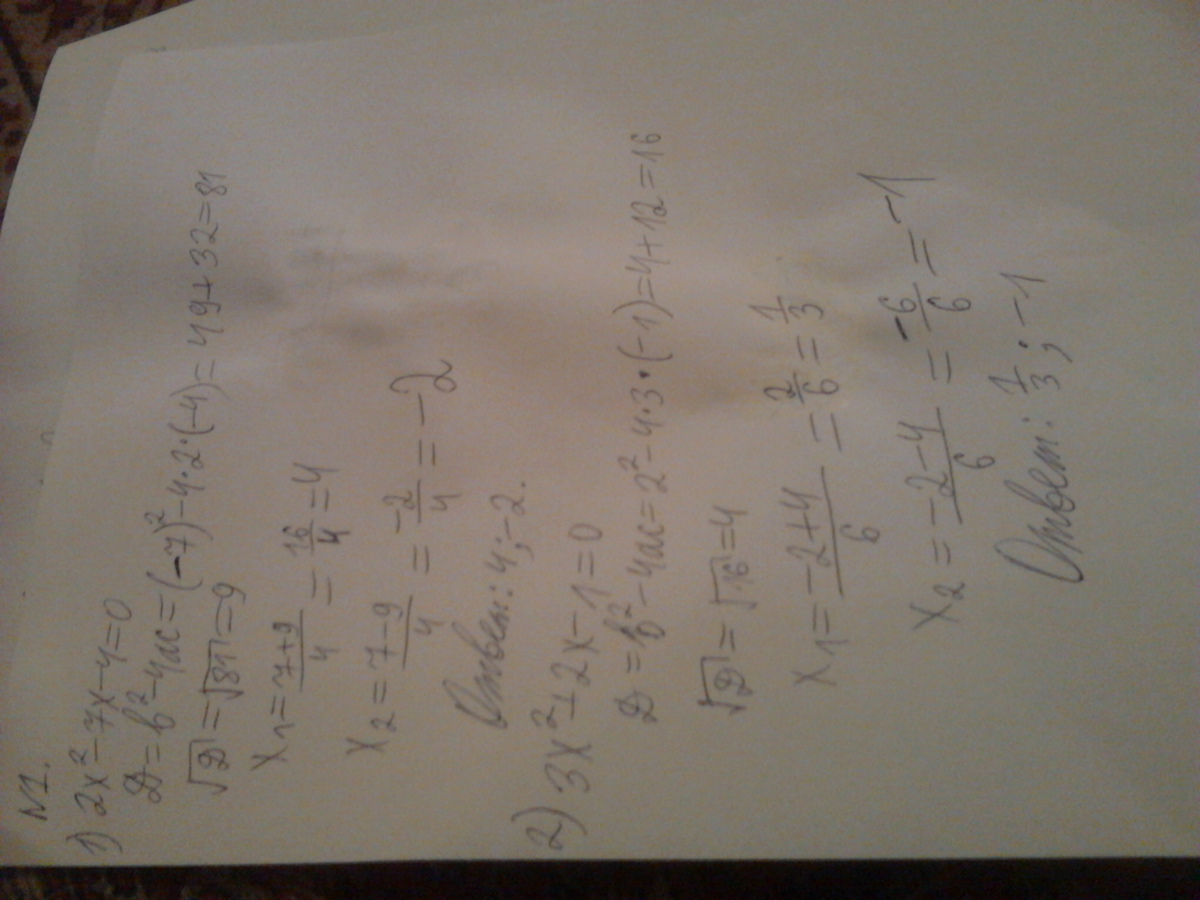 N1.
1) 2x²-7x-4=0
D=b²-4ac=(-7)²-4·2·(-4)=49+32=81
√D=√81=9
x₁=7+9/4=16/4=4
x₂=7-9/4=-2/4=-2
Ответ: 4;-2.
2) 3x²+2x-1=0
D=b²-4ac=2²-4·3·(-1)=4+12=16
√D=√16=4
x₁=-2+4/6=2/6=1/3
x₂=-2-4/6=-6/6=-1
Ответ: 1/3;-1